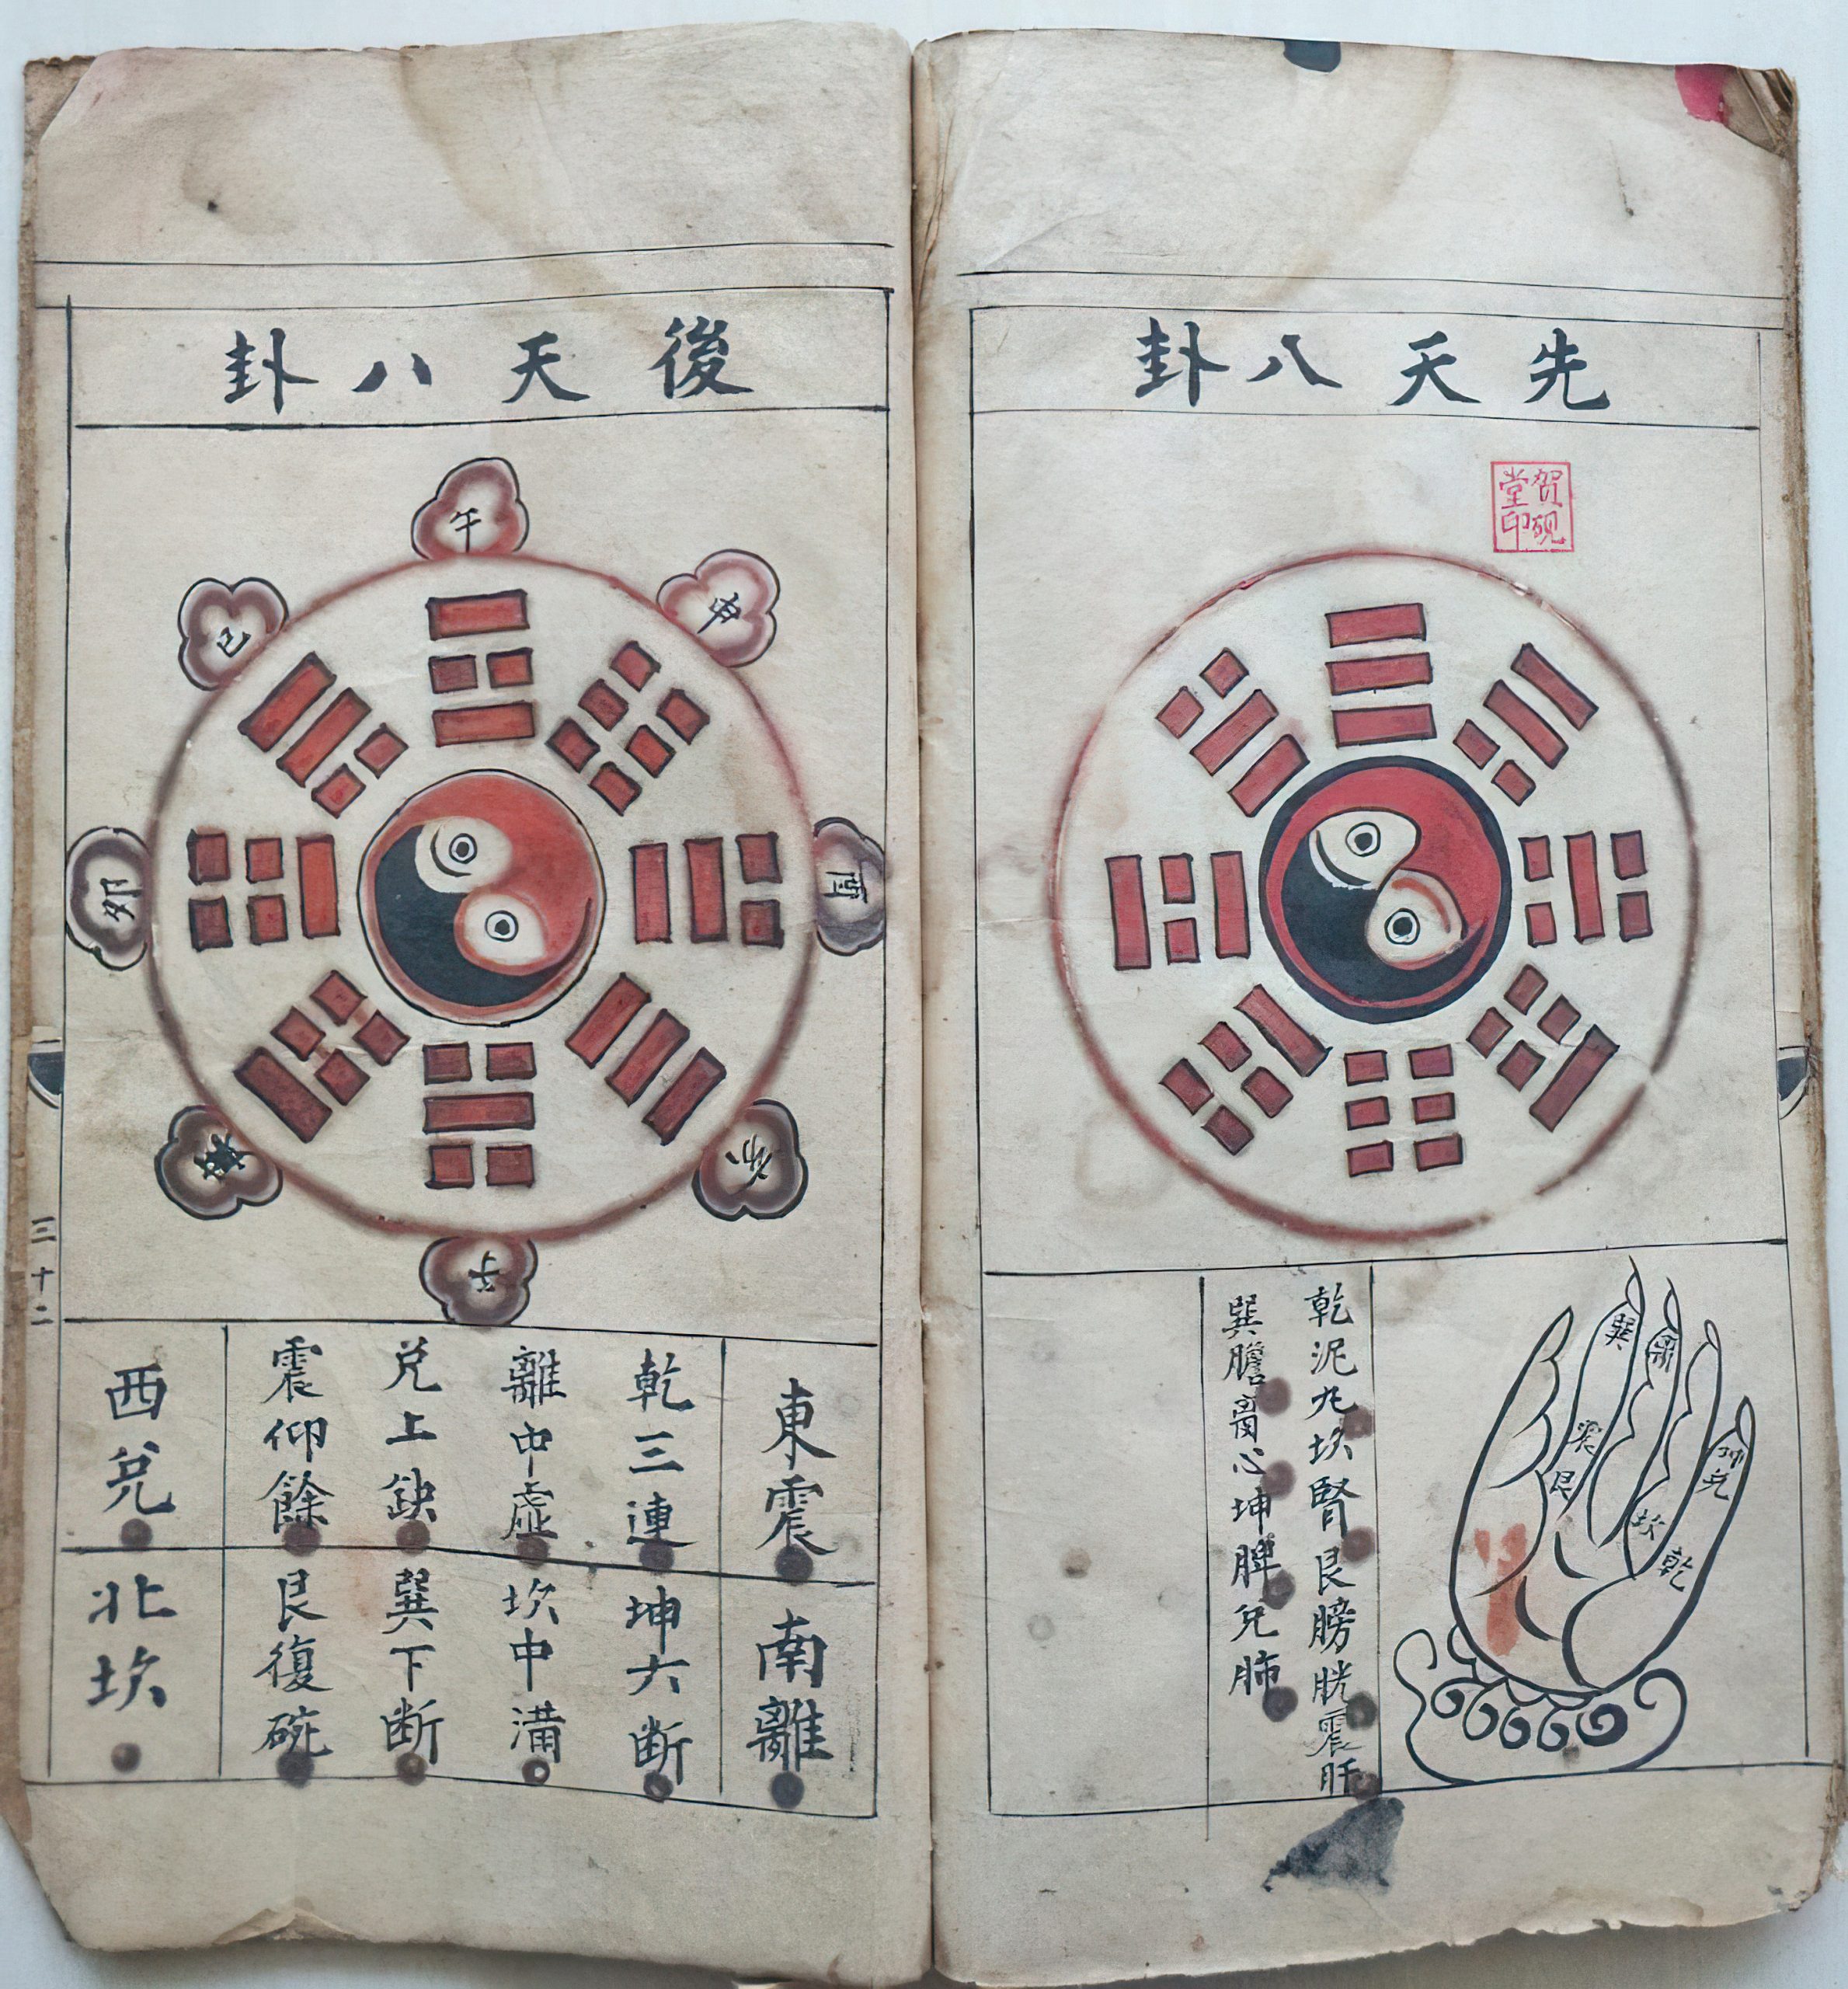 先天八卦
贺砚
堂印
巽
离
震
艮
坤
兌
坎
乾
乾泥丸坎腎艮膀胱震肝
巽膽离心坤脾兌肺
後天八卦
午
申
酉
子
卯
巳
東震
南離
乾三連
坤六断
離中虛
坎中满
兌上缺
巽下断
震仰餘
艮復碗
西兌
北坎
三十二